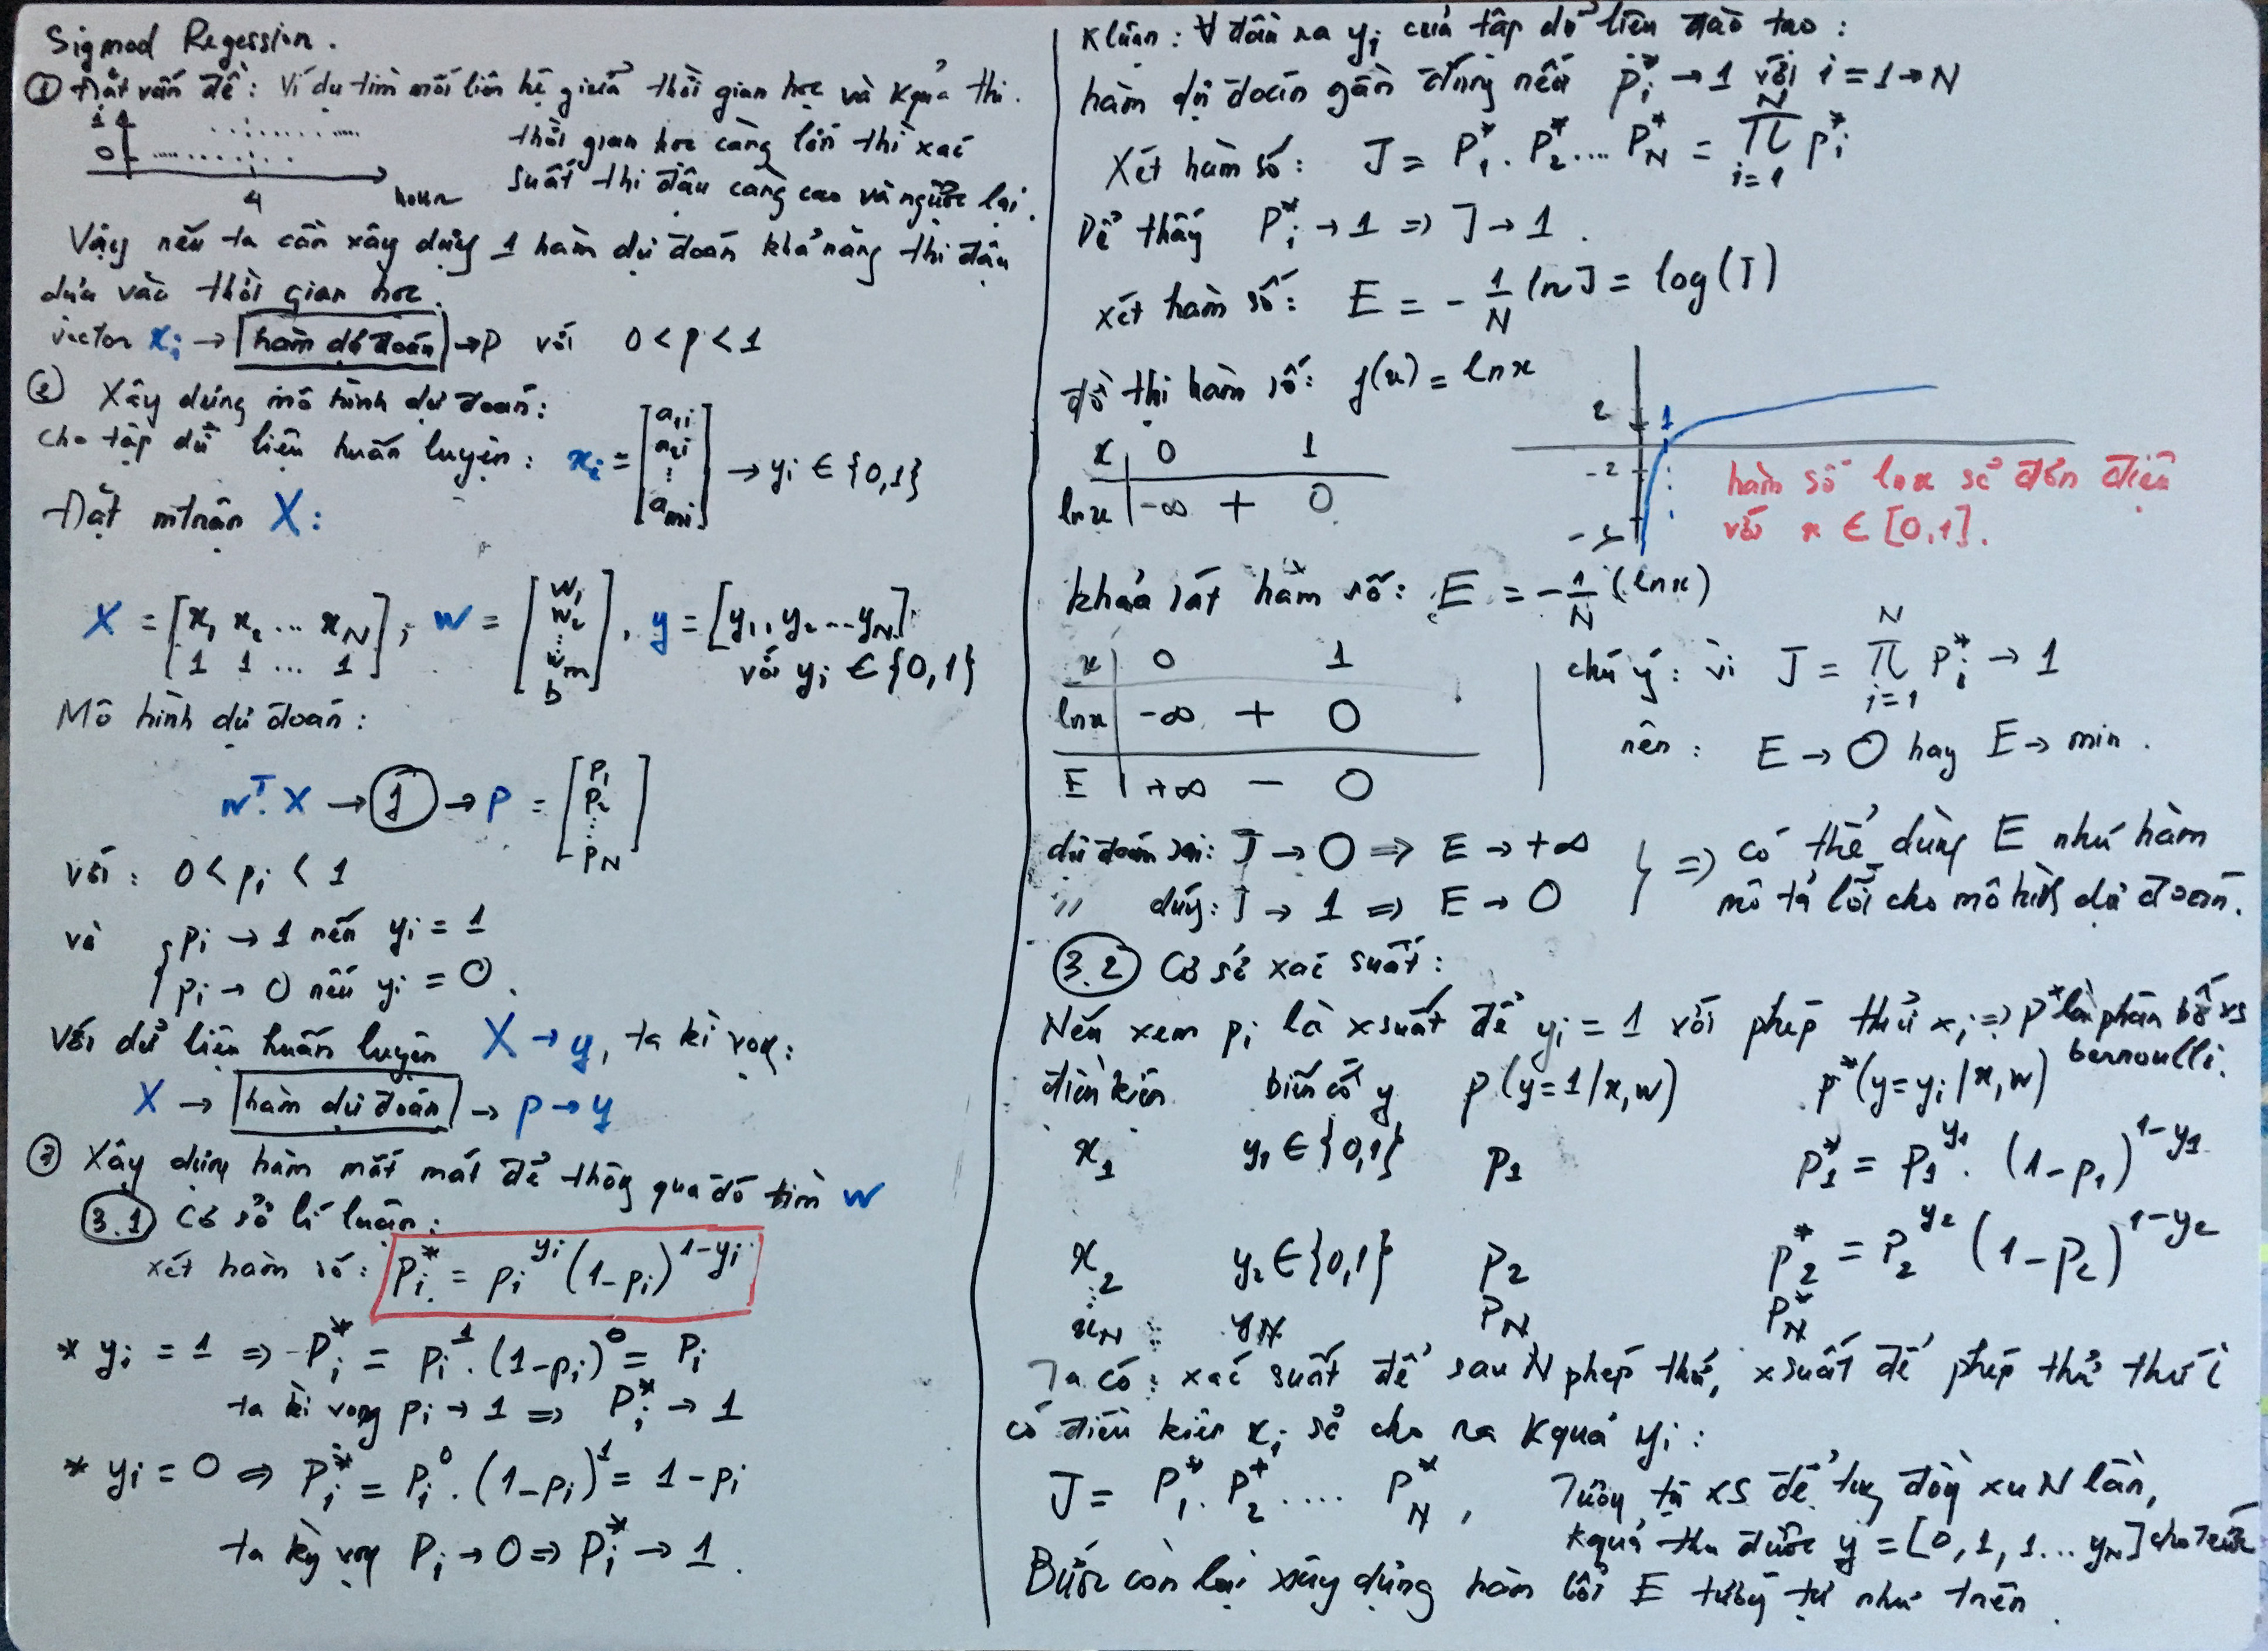 Sigmod Regession.
① Đặt vấn đề: Ví dụ tìm mối liên hệ giữa thời gian học và kquả thi.
1
0
4
hour
thời gian học càng lớn thì xác
suất thi đậu càng cao và ngược lại.
Vậy nếu ta cần xây dựng 1 hàm dự đoán khả năng thi đậu
dựa vào thời gian học.
vector xᵢ → hàm dự đoán → p với 0 < p < 1
② Xây dựng mô hình dự đoán:
cho tập dữ liệu huấn luyện: xᵢ = [a₁ᵢ a₂ᵢ ⋮ aₘᵢ] → yᵢ ∈ {0,1}
Đặt mtrận X:
X = [x₁ x₂ ... x_N; 1 1 ... 1]; w = [w₁ w₂ ⋮ wₘ b], y = [y₁, y₂ ... y_N]
với yᵢ ∈ {0,1}
Mô hình dự đoán:
wᵀ.X → f → p = [p₁ p₂ ⋮ p_N]
với: 0 < pᵢ < 1
và { pᵢ → 1 nếu yᵢ = 1
pᵢ → 0 nếu yᵢ = 0.
Với dữ liệu huấn luyện X → y, ta kì vọng:
X → hàm dự đoán → p → y
③ Xây dựng hàm mất mát để thông qua đó tìm w
3.1 Cơ sở lí luận:
xét hàm số: Pᵢ* = pᵢ^yᵢ (1-pᵢ)^(1-yᵢ)
* yᵢ = 1 ⇒ Pᵢ* = pᵢ¹.(1-pᵢ)⁰ = Pᵢ
ta kì vọng pᵢ → 1 ⇒ Pᵢ* → 1
* yᵢ = 0 ⇒ Pᵢ* = Pᵢ⁰.(1-pᵢ)¹ = 1-pᵢ
ta kỳ vọng Pᵢ → 0 ⇒ Pᵢ* → 1.
Kluận: ∀ đầu ra yᵢ của tập dữ liệu đào tạo:
hàm dự đoán gần đúng nếu pᵢ* → 1 với i = 1 → N
Xét hàm số: J = P₁*.P₂*.... P_N* = ∏_{i=1}^{N} pᵢ*
Dễ thấy Pᵢ* → 1 ⇒ J → 1.
xét hàm số: E = -1/N ln J = log(J)
đồ thị hàm số: f(x) = lnx
x 0 1
lnx -∞ + 0
2
1
-2
hàm số lnx sẽ đơn điệu
với x ∈ [0,1].
khảo sát hàm số: E = -1/N (lnx)
x 0 1
lnx -∞ + 0
E +∞ - 0
chú ý: vì J = ∏_{i=1}^{N} Pᵢ* → 1
nên: E → 0 hay E → min.
dự đoán sai: J → 0 ⇒ E → +∞
" đúng: J → 1 ⇒ E → 0
} ⇒ có thể dùng E như hàm
mô tả lỗi cho mô hình dự đoán.
3.2 Cơ sở xác suất:
Nếu xem pᵢ là xsuất để yᵢ = 1 với phép thử xᵢ ⇒ p* là phân bố xs
bernoulli.
điều kiện biến cố y p(y=1/x,w) p*(y=yᵢ|x,w)
x₁ y₁ ∈ {0,1} p₁ P₁* = P₁^y₁.(1-p₁)^(1-y₁)
x₂ y₂ ∈ {0,1} p₂ P₂* = P₂^y₂ (1-p₂)^(1-y₂)
⋮
x_N y_N P_N P_N*
Ta có: xác suất để sau N phép thử, xsuất để phép thử thứ i
có điều kiện xᵢ sẽ cho ra kquả yᵢ:
J = P₁*.P₂*.... P_N*, Tương tự XS để tung đồng xu N lần,
kquả thu được y = [0,1,1...y_N] cho trước
Bước còn lại xây dựng hàm lỗi E tương tự như trên.